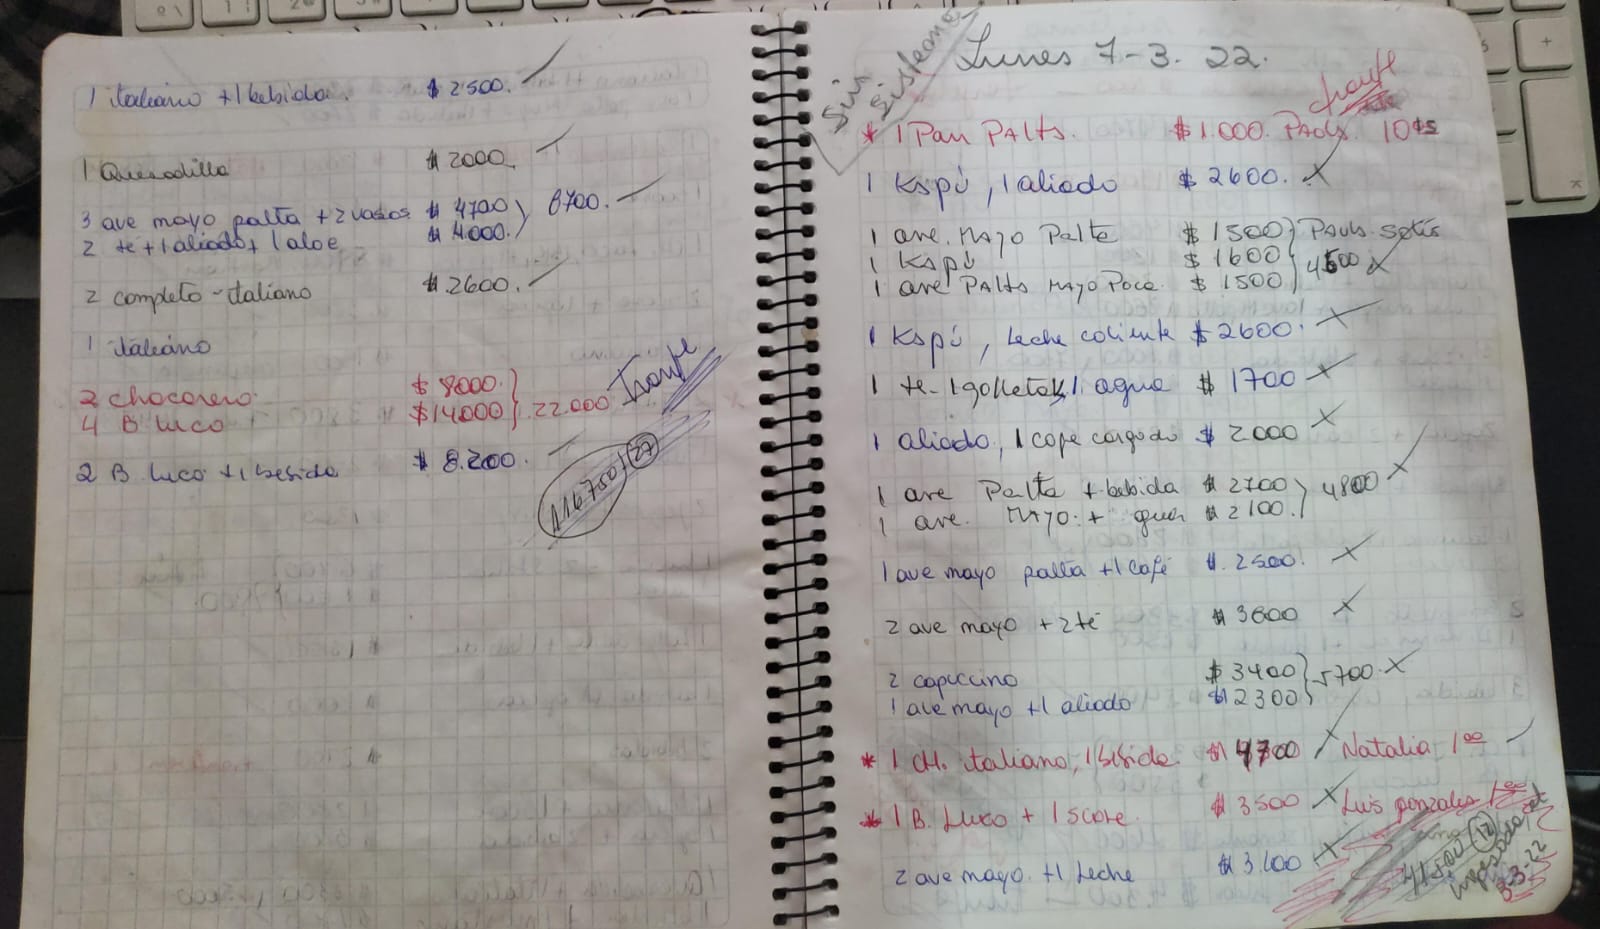 1 italiano + 1 bebida. $ 2500.
1 Quesadilla $ 2000.
3 ave mayo palta + 2 vasos $ 4700 } 8700.
2 te + 1 aliado + 1 aloe $ 4000.
2 completo - italiano $ 2600.
1 italiano
2 chacarero. $ 8000. } 22.000 Tranfe
4 B luco $ 14000
2 B. luco + 1 bebida $ 8.200.
116.750 27
Sin sisteana
Lunes 7-3. 22.
* 1 Pan Palta. $ 1.000. Paola. 10 tranfe
1 Kspú, 1 aliado $ 2600.
1 ave. mayo Palta $ 1500 } Paula
1 Kspú $ 1600 } 4600
1 ave Palta mayo Poca. $ 1500
1 Kspú, leche caliente $ 2600.
1 te - 1 galleta, 1 agua $ 1700
1 aliado, 1 cafe cargado $ 2000
1 ave Palta + bebida $ 2700 } 4800
1 ave. mayo. + agua $ 2100.
1 ave mayo palta + 1 café $. 2500.
2 ave mayo + 2 té $ 3600
2 capuccino $ 3400 } 5700.
1 ave mayo + 1 aliado $ 2300
* 1 ch. italiano, 1 bebida. $ 4700 Natalia 100
* 1 B. Luco + 1 score. $ 3500 Luis gonzales 100
2 ave mayo. + 1 leche $ 3.600
41.500 12
3-3-22